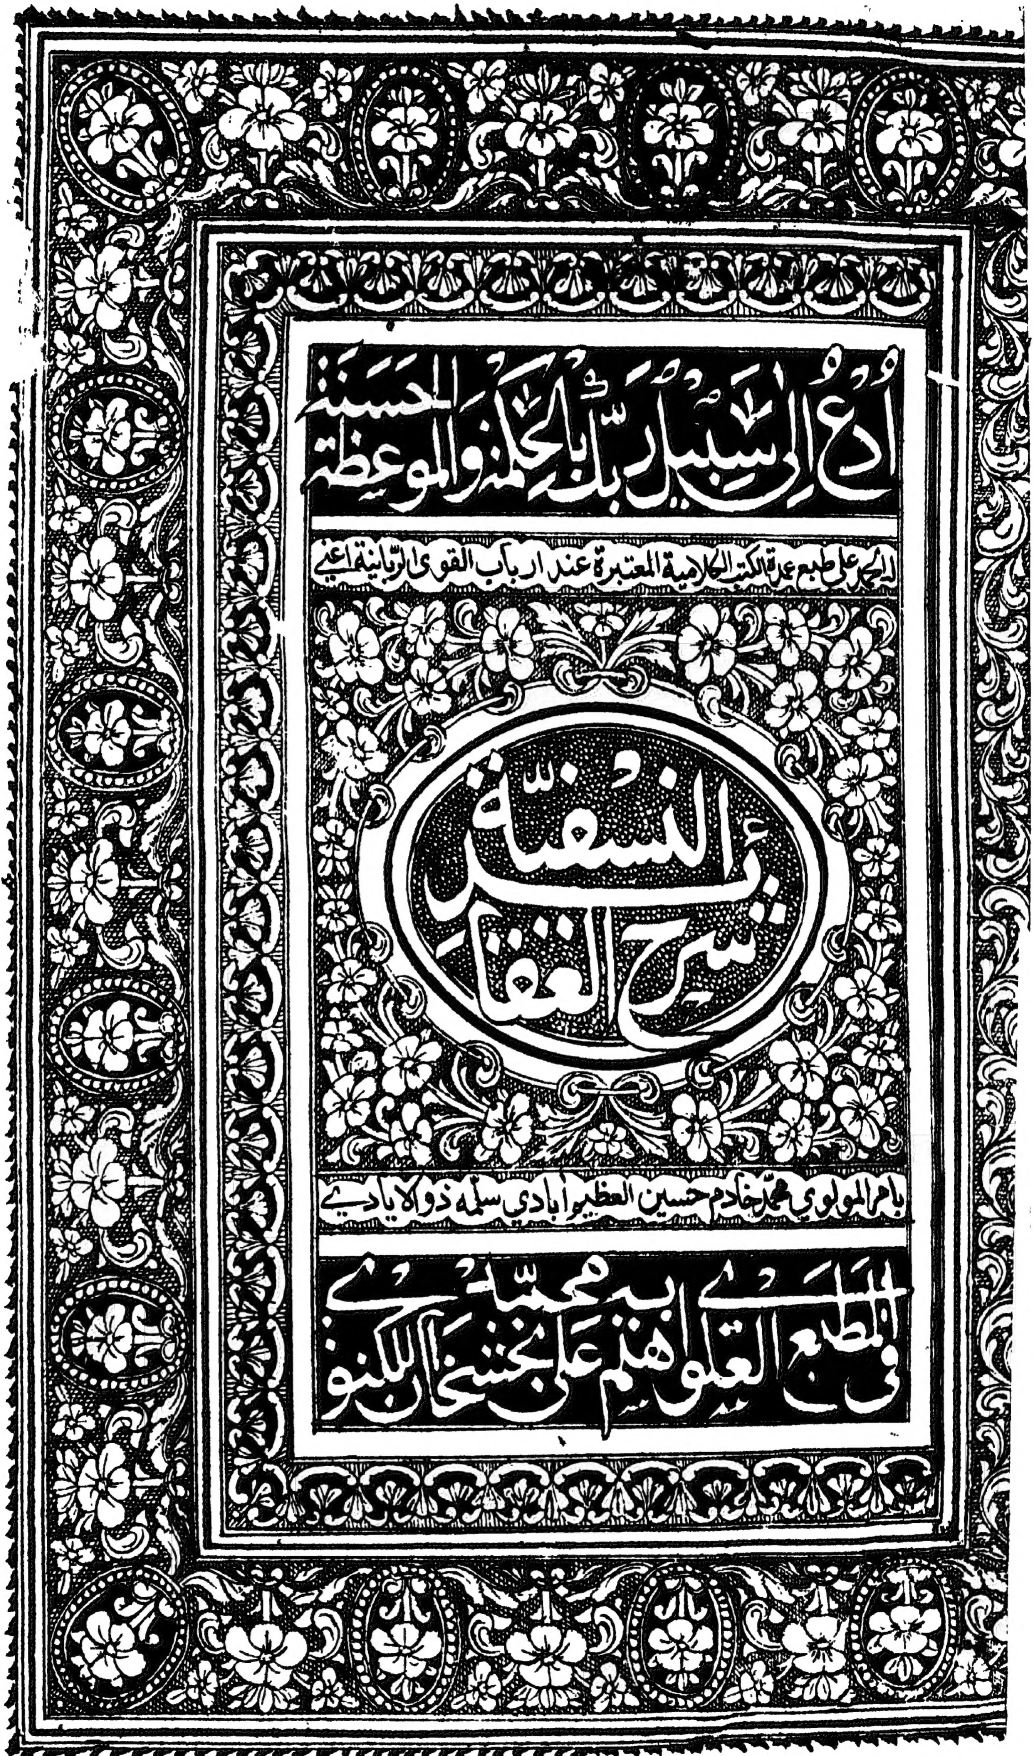 اُدْعُ اِلٰی سَبِیْلِ رَبِّكَ بِالْحِكْمَةِ وَالْمَوْعِظَةِ الْحَسَنَةِ
لله الحمد علی طبع عمدة الکتب الکلامیة المعتبرة عند ارباب القوی الربانیة اعنی
شرح العقائد
النسفیّة
بامر المولوي محمد خادم حسین العظیم آبادي سلمه ذو الایادي
فی المطبع العلوی
علی بخش خان اللکنوی